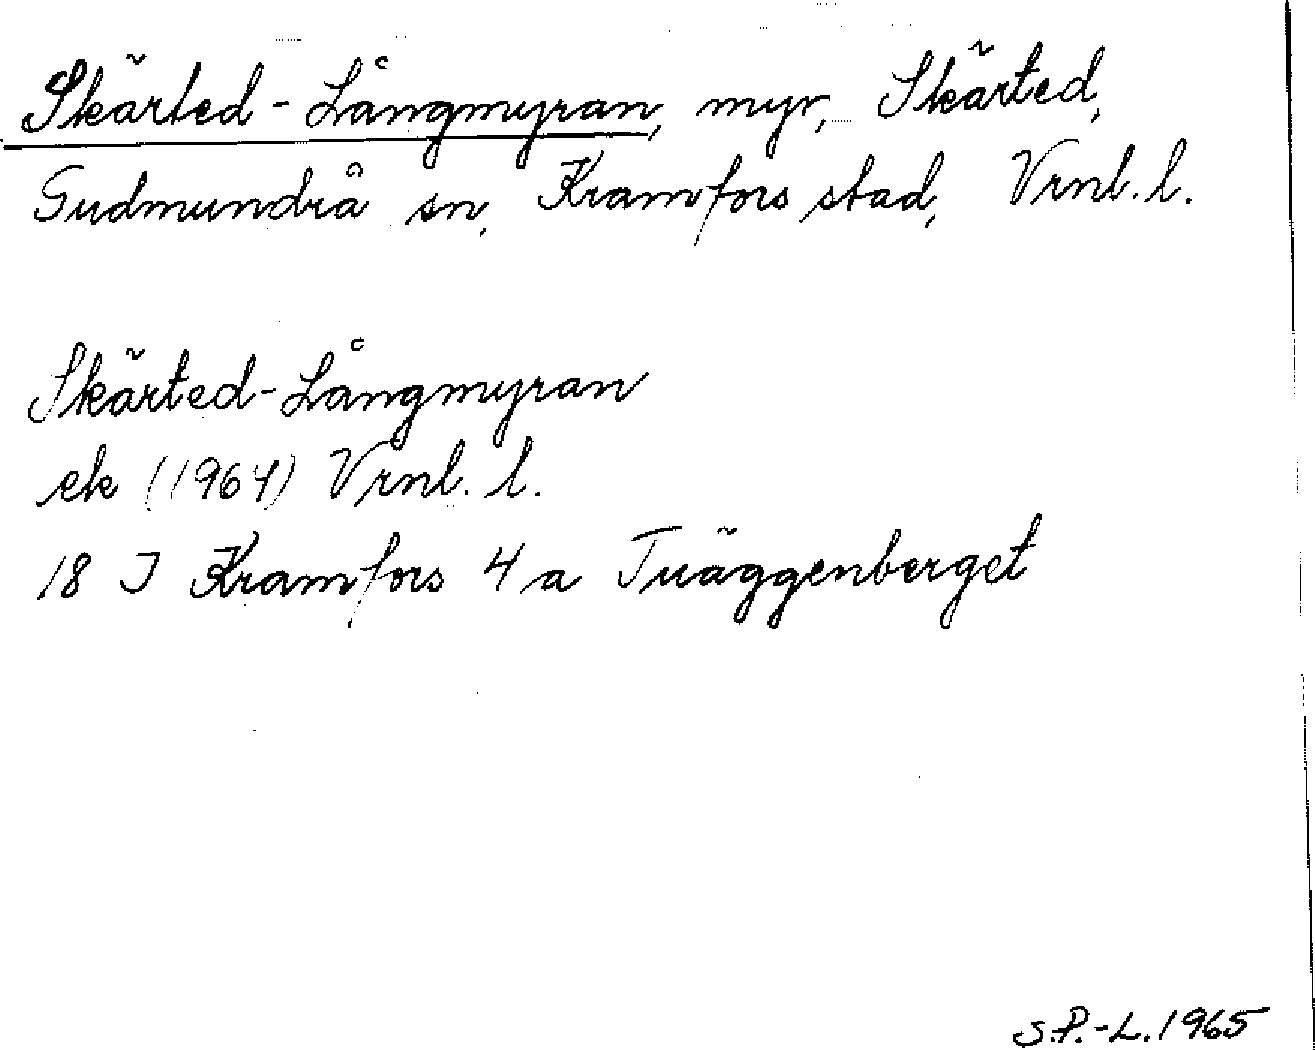 Skärted-Långmyran, myr, Skärted,
Gudmundrå sn, Kramfors stad, Vrnl. l.
Skärted-Långmyran
ek (1964) Vrnl. l.
18 I Kramfors 4 a Tväggenberget
S.P.-L. 1965